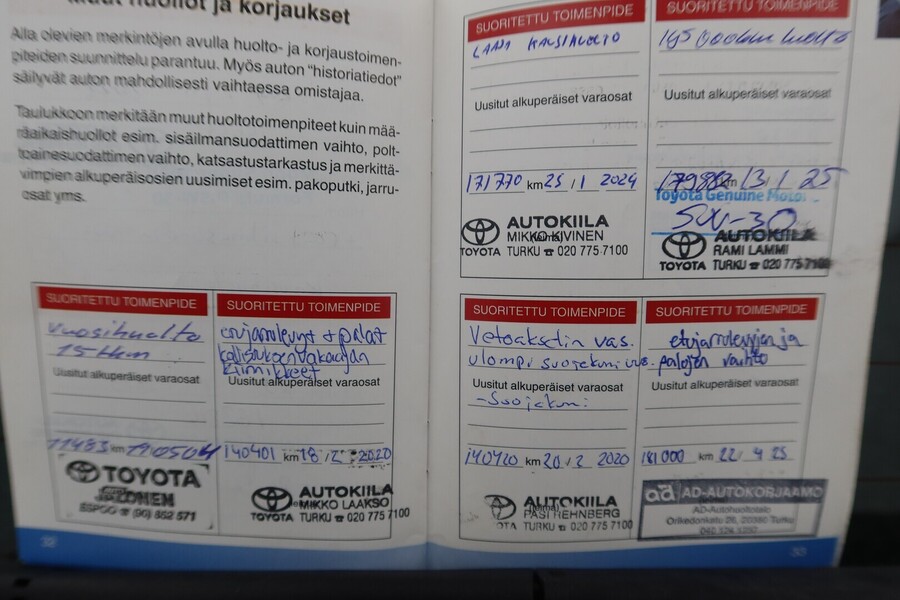 Muut huollot ja korjaukset
Alla olevien merkintöjen avulla huolto- ja korjaustoimen-
piteiden suunnittelu parantuu. Myös auton "historiatiedot"
säilyvät auton mahdollisesti vaihtaessa omistajaa.
Taulukkoon merkitään muut huoltotoimenpiteet kuin mää-
räaikaishuollot esim. sisäilmansuodattimen vaihto, polt-
toainesuodattimen vaihto, katsastustarkastus ja merkittä-
vimpien alkuperäisosien uusimiset esim. pakoputki, jarru-
osat yms.
SUORITETTU TOIMENPIDE
vuosihuolto
15tkm
Uusitut alkuperäiset varaosat
11483 km
TOYOTA
ESPOO ☎ (90) 852 571
SUORITETTU TOIMENPIDE
etujarrulevyt + palat
kallistuksenvakaajan
kumikkeet
Uusitut alkuperäiset varaosat
140401 km 18/2 2020
AUTOKIILA
MIKKO LAAKSO
TOYOTA TURKU ☎ 020 775 7100
32
SUORITETTU TOIMENPIDE
Uusitut alkuperäiset varaosat
171770 km 25/1 2024
AUTOKIILA
MIKKO KIVINEN
TOYOTA TURKU ☎ 020 775 7100
SUORITETTU TOIMENPIDE
165 000km huolto
Uusitut alkuperäiset varaosat
km 13/1 25
Toyota Genuine Motor
5W-30
AUTOKIILA
RAMI LAMMI
TOYOTA TURKU ☎ 020 775 7100
SUORITETTU TOIMENPIDE
Vetoakselin vas.
ulompi suojakumi
Uusitut alkuperäiset varaosat
-Suojakumi
140420 km 20/2 2020
AUTOKIILA
PASI REHNBERG
OTA TURKU ☎ 020 775 7100
SUORITETTU TOIMENPIDE
etujarrulevyjen ja
palojen vaihto
Uusitut alkuperäiset varaosat
181000 km 22/4 25
ad AD-AUTOKORJAAMO
AD-Autohuoltotalo
Orikedonkatu 26, 20380 Turku
33